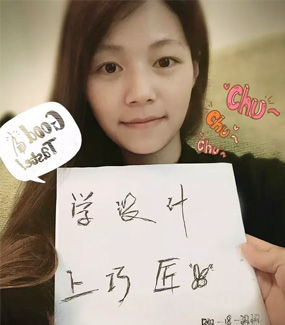 Good
Taste!
Chu~
Chu~
Chu~
学设计
上巧匠